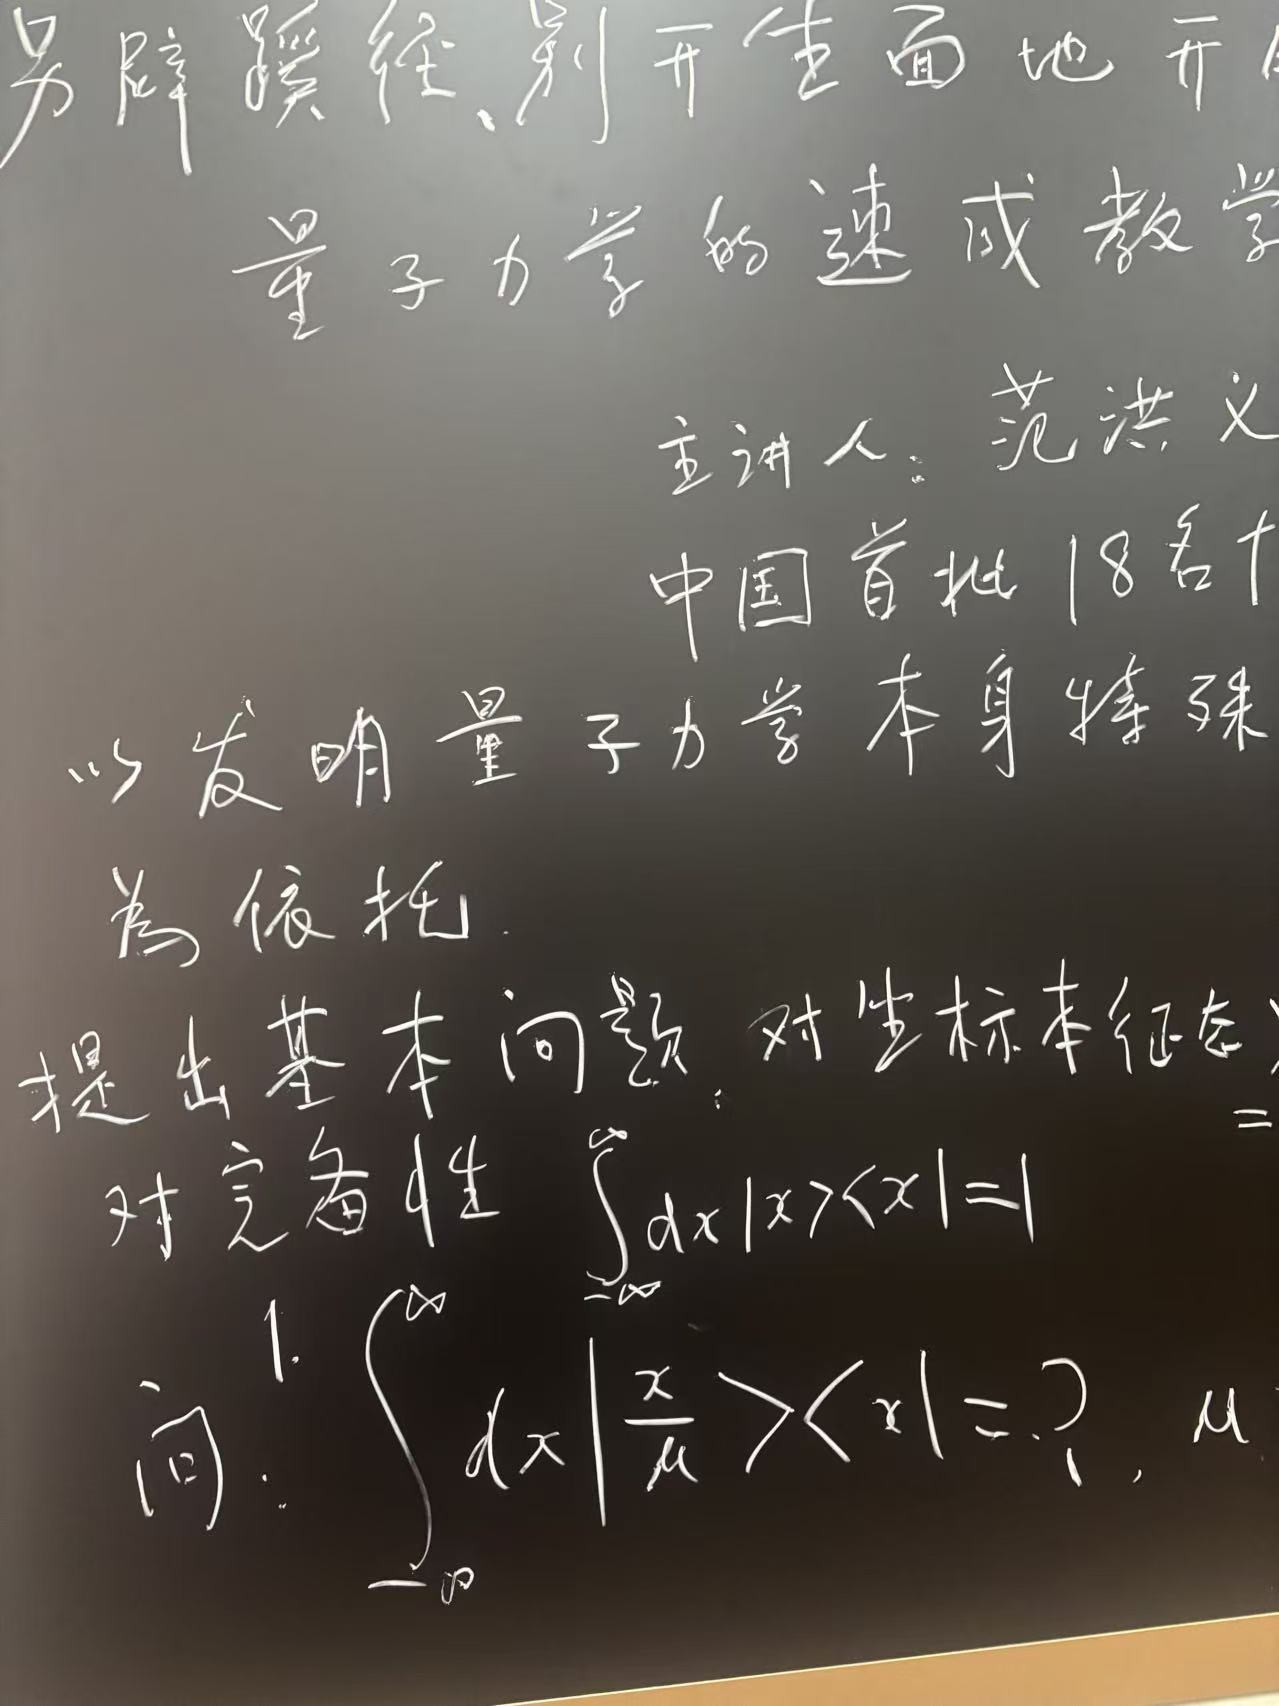 另辟蹊径、别开生面地开
量子力学的速成教学
主讲人：范洪义
中国首批18名
以发明量子力学本身特殊
為依托.
提出基本问题：对坐标本征态
=
对完备性 ∫_{-∞}^{∞} dx|x><x|=1
问：1. ∫_{-∞}^{∞} dx|x/μ><x|=?, μ